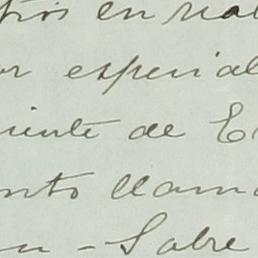 en
or especial
iente de E
nto llama
n - Sobre